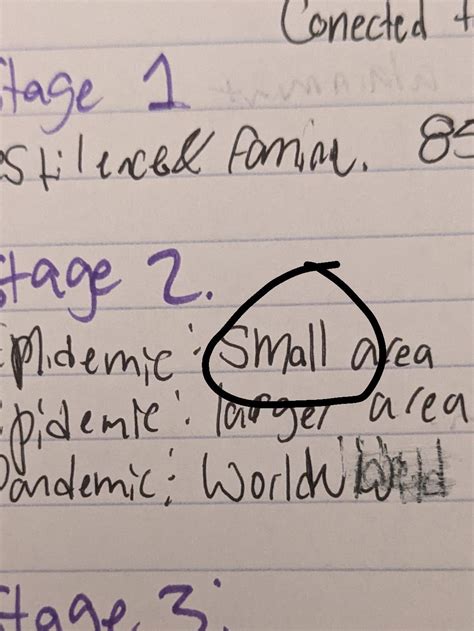 Conected t
Stage 1
estilence & Famine. 85
Stage 2.
Eplidemic: Small area
Epidemic: larger area
Pandemic: World
Stage 3: